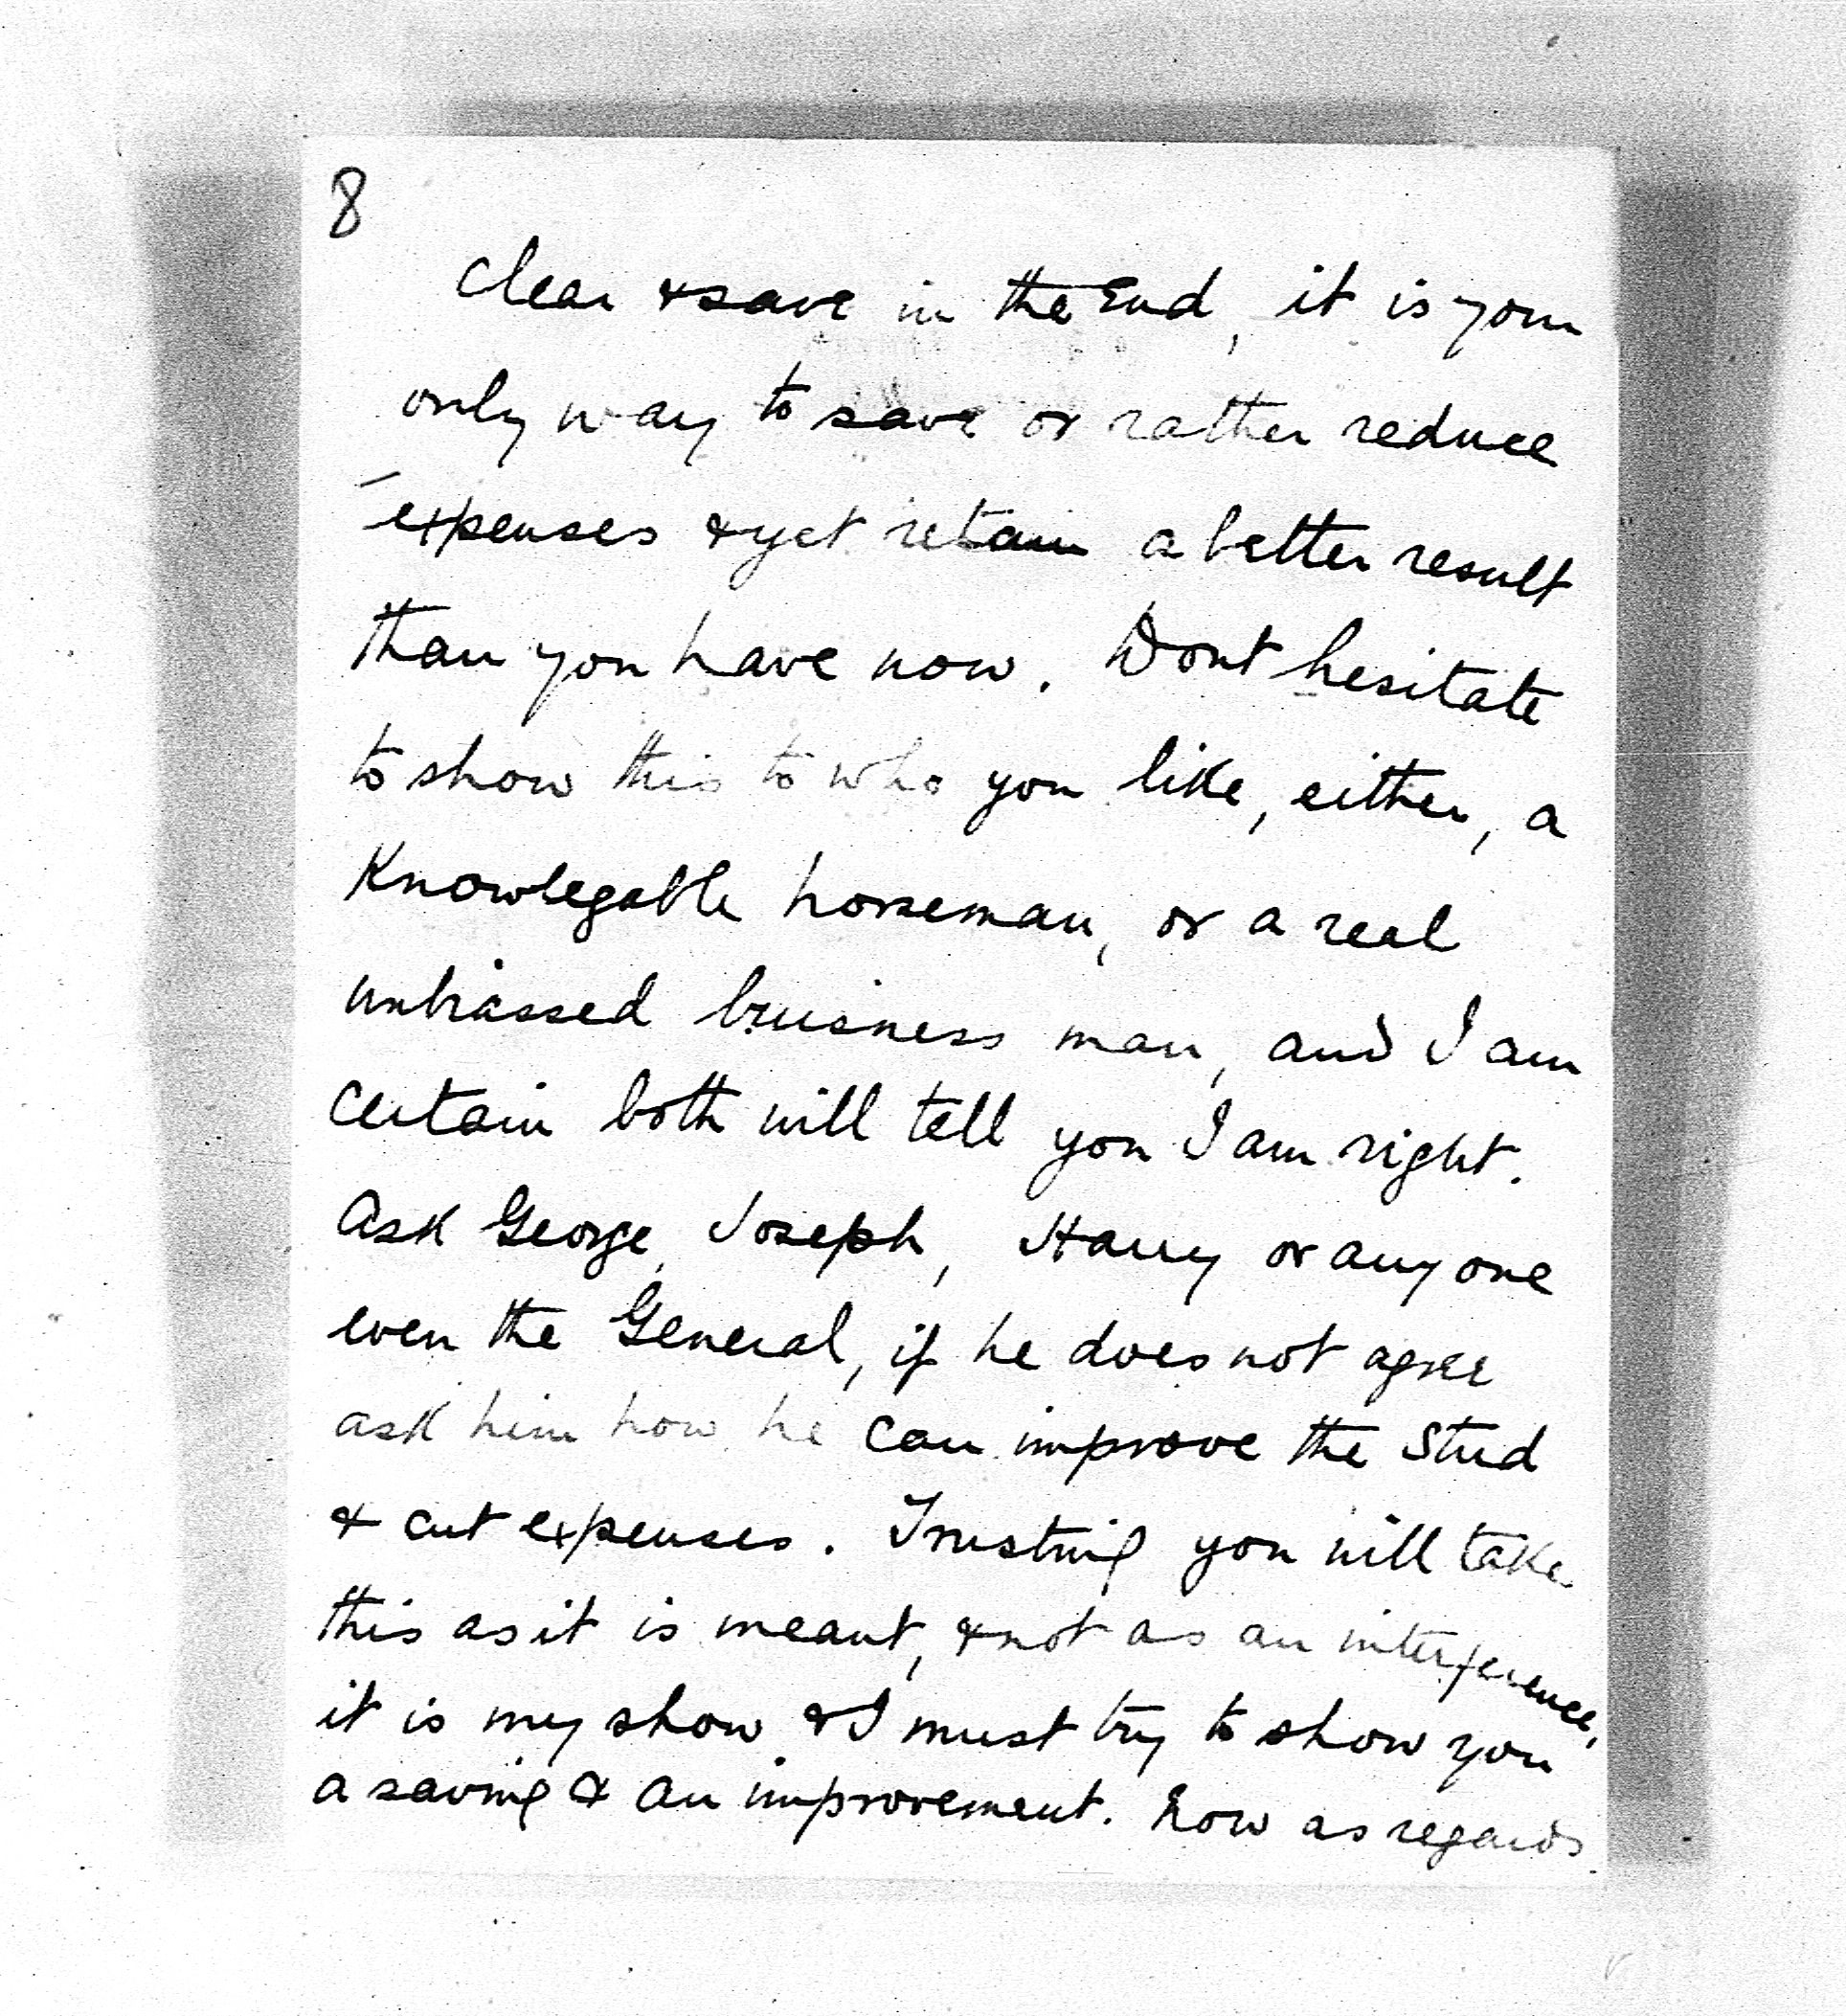 8
clear & save in the End, it is your
only way to save or rather reduce
expenses & yet retain a better result
than you have now. Dont hesitate
to show this to who you like, either, a
Knowlegable horseman, or a real
unbiassed buisness man, and I am
certain both will tell you I am right.
Ask George, Joseph, Harry or any one
even the General, if he does not agree
ask him how he can improve the Stud
& cut expenses. Trusting you will take
this as it is meant, & not as an interference,
it is my show & I must try to show you
a saving & an improvement. Now as regards